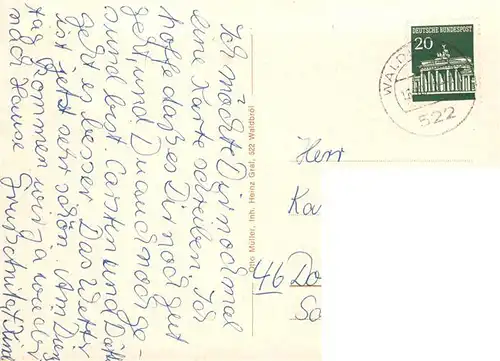 Ich möchte Dir nochmal
eine Karte schreiben. Ich
hoffe daß es Dir noch gut
geht, und Du auch noch ge-
sund bist. Carsten und
geht es besser. Das Wetter
ist jetzt sehr schön. Am Dins
tag kommen wir wieder
nach Hause
Otto Müller, Inh. Heinz Gral, 522 Waldbröl
DEUTSCHE BUNDESPOST
20
WALD
522
Herr
Ka
46 Do